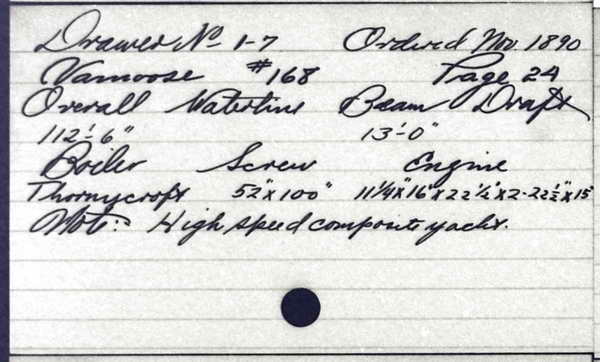 Drawer No 1-7 Ordered Nov. 1890
Vamoose #168 Page 24
Overall Waterline Beam Draft
112'-6" 13'-0"
Boiler Screw Engine
Thornycroft 52"x100" 11 1/4"x16"x22 1/2"x2-22 1/2"x15
Note: High speed composite yacht.